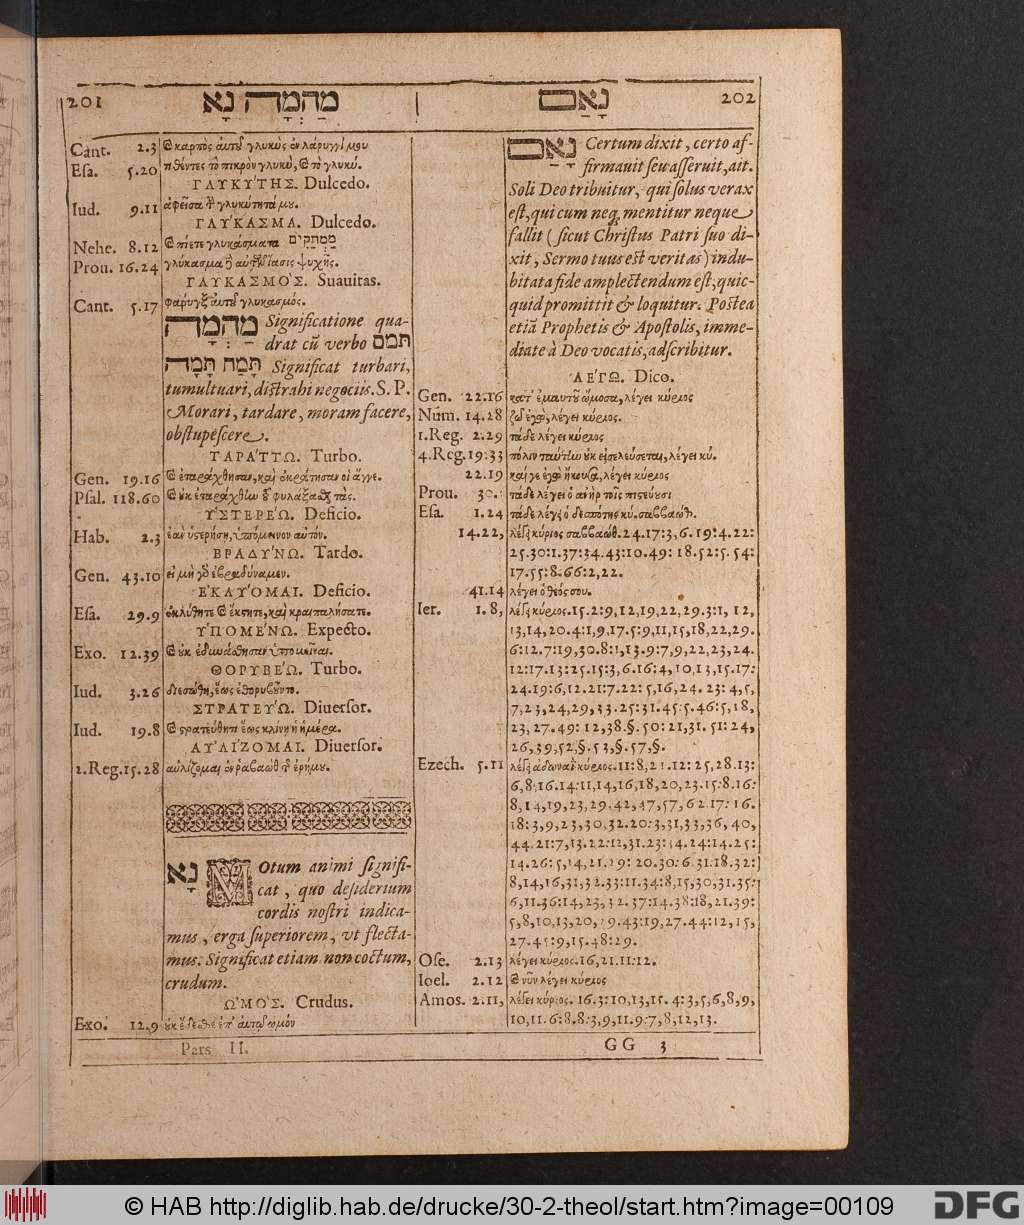 201
מַהְמָה נָא
Cant. 2.3 καρπὸς αὐτοῦ γλυκὺς ἐν λάρυγγί μου
Esa. 5.20 τιθέντες τὸ πικρὸν γλυκὺ, τὸ γλυκύ.
ΓΛΥΚΥΤΗΣ. Dulcedo.
Iud. 9.11 γλυκύτητά μου.
ΓΛΥΚΑΣΜΑ. Dulcedo.
Nehe. 8.12 πίετε γλυκάσματα מַמְתַקִּים
Prou. 16.24 γλύκασμα ψυχῆς.
ΓΛΥΚΑΣΜΟΣ. Suauitas.
Cant. 5.17 φάρυγξ αὐτοῦ γλυκασμός.
מַהְמָה Significatione qua-
drat cū verbo תמם
תָּמַהּ תָּמָה Significat turbari,
tumultuari, distrahi negociis. S. P.
Morari, tardare, moram facere,
obstupescere.
ΤΑΡΑΤΤΩ. Turbo.
Gen. 19.16
Psal. 118.60
ΥΣΤΕΡΕΩ. Deficio.
Hab. 2.3 ἐὰν ὑστερήσῃ, ὑπόμεινον αὐτόν.
ΒΡΑΔΥΝΩ. Tardo.
Gen. 43.10 εἰ μὴ γὸ ἐβραδύναμεν.
ΕΚΛΥΟΜΑΙ. Deficio.
Esa. 29.9 ἐκλύθητε ἔκστητε, καὶ κραιπαλήσατε.
ΥΠΟΜΕΝΩ. Expecto.
Exo. 12.39 οὐκ ὑπομεῖναι.
ΘΟΡΥΒΕΩ. Turbo.
Iud. 3.26 ἕως ἐθορυβοῦντο.
ΣΤΡΑΤΕΥΩ. Diuersor.
Iud. 19.8 ἕως κλίνῃ ἡ ἡμέρα.
ΑΥΛΙΖΟΜΑΙ. Diuersor.
2.Reg. 15.28 αὐλίζομαι ἐρήμου.
נָא MOtum animi signifi-
cat, quo desiderium
cordis nostri indica-
mus, erga superiorem, vt flecta-
mus. Significat etiam non coctum,
crudum.
ΩΜΟΣ. Crudus.
Exo. 12.9 οὐκ ἔδεσθε ἀπ' αὐτῶν ὠμόν
Pars II.
נָאַם
202
נָאַם Certum dixit, certo af-
firmauit seu asseruit, ait.
Soli Deo tribuitur, qui solus verax
est, qui cum neq; mentitur neque
fallit (sicut Christus Patri suo di-
xit, Sermo tuus est veritas) indu-
bitata fide amplectendum est, quic-
quid promittit & loquitur. Postea
etiā Prophetis & Apostolis, imme-
diate à Deo vocatis, adscribitur.
ΛΕΓΩ. Dico.
Gen. 22.16 κατ' ἐμαυτοῦ ὤμοσα, λέγει κύριος
Num. 14.28 ζῶ ἐγὼ, λέγει κύριος.
1.Reg. 2.29 τάδε λέγει κύριος
4.Reg. 19.33 πόλιν ταύτην οὐκ εἰσελεύσεται, λέγει κύ.
22.19 καί γε ἐγὼ ἤκουσα, λέγει κύριος
Prou. 30. τάδε λέγει ὁ ἀνὴρ τοῖς πιστεύουσι
Esa. 1.24 τάδε λέγει ὁ δεσπότης κύ. σαββαώθ.
14.22, λέγει κύριος σαββαώθ. 24. 17:3, 6. 19:4. 22:
25. 30:1. 37:34. 43:10. 49: 18. 52:5. 54:
17. 55:8. 66:2, 22.
41.14 λέγει ὁ θεός σου.
Ier. 1.8, λέγει κύριος. 15. 2:9, 12, 19, 22, 29. 3:1, 12,
13, 14, 20. 4:1, 9, 17. 5:9, 11, 15, 18, 22, 29.
6:12. 7:19, 30. 8:1, 13. 9:7, 9, 22, 23, 24.
12:17. 13:25. 15:3, 6. 16:4, 10, 13, 15. 17:
24. 19:6, 12. 21:7. 22: 5, 16, 24. 23: 4, 5,
7, 23, 24, 29, 33. 25:31. 45:5. 46:5, 18,
23, 27. 49: 12, 38. §. 50: 21, 31. 51: 24,
26, 39, 52, §. 53, §. 57, §.
Ezech. 5.11 λέγει ἀδωναῒ κύριος. 11:8, 21. 12: 25, 28. 13:
6, 8. 16. 14:11, 14, 16, 18, 20, 23. 15:8. 16:
8, 14, 19, 23, 29. 42, 47, 57, 62. 17: 16.
18: 3, 9, 23, 30, 32. 20:3, 31, 33, 36, 40,
44. 21:7, 13. 22:12, 31. 23: 14. 24:14. 25:
14. 26: 5, 14, 21. 29: 20. 30: 6. 31. 18. 32:
8, 14, 16, 31, 32. 33:11. 34:8, 15, 30, 31. 35:
6, 11. 36:14, 23, 32. 37:14. 38:18, 21. 39:
5, 8, 10, 13, 20, 29. 43:19, 27. 44:12, 15,
27. 45:9, 15. 48:29.
Ose. 2.13 λέγει κύριος. 16, 21. 11:12.
Ioel. 2.12 νῦν λέγει κύριος
Amos. 2.11, λέγει κύριος. 16. 3:10, 13, 15. 4:3, 5, 6, 8, 9,
10, 11. 6:8. 8:3, 9, 11. 9:7, 8, 12, 13.
GG 3
© HAB http://diglib.hab.de/drucke/30-2-theol/start.htm?image=00109
DFG